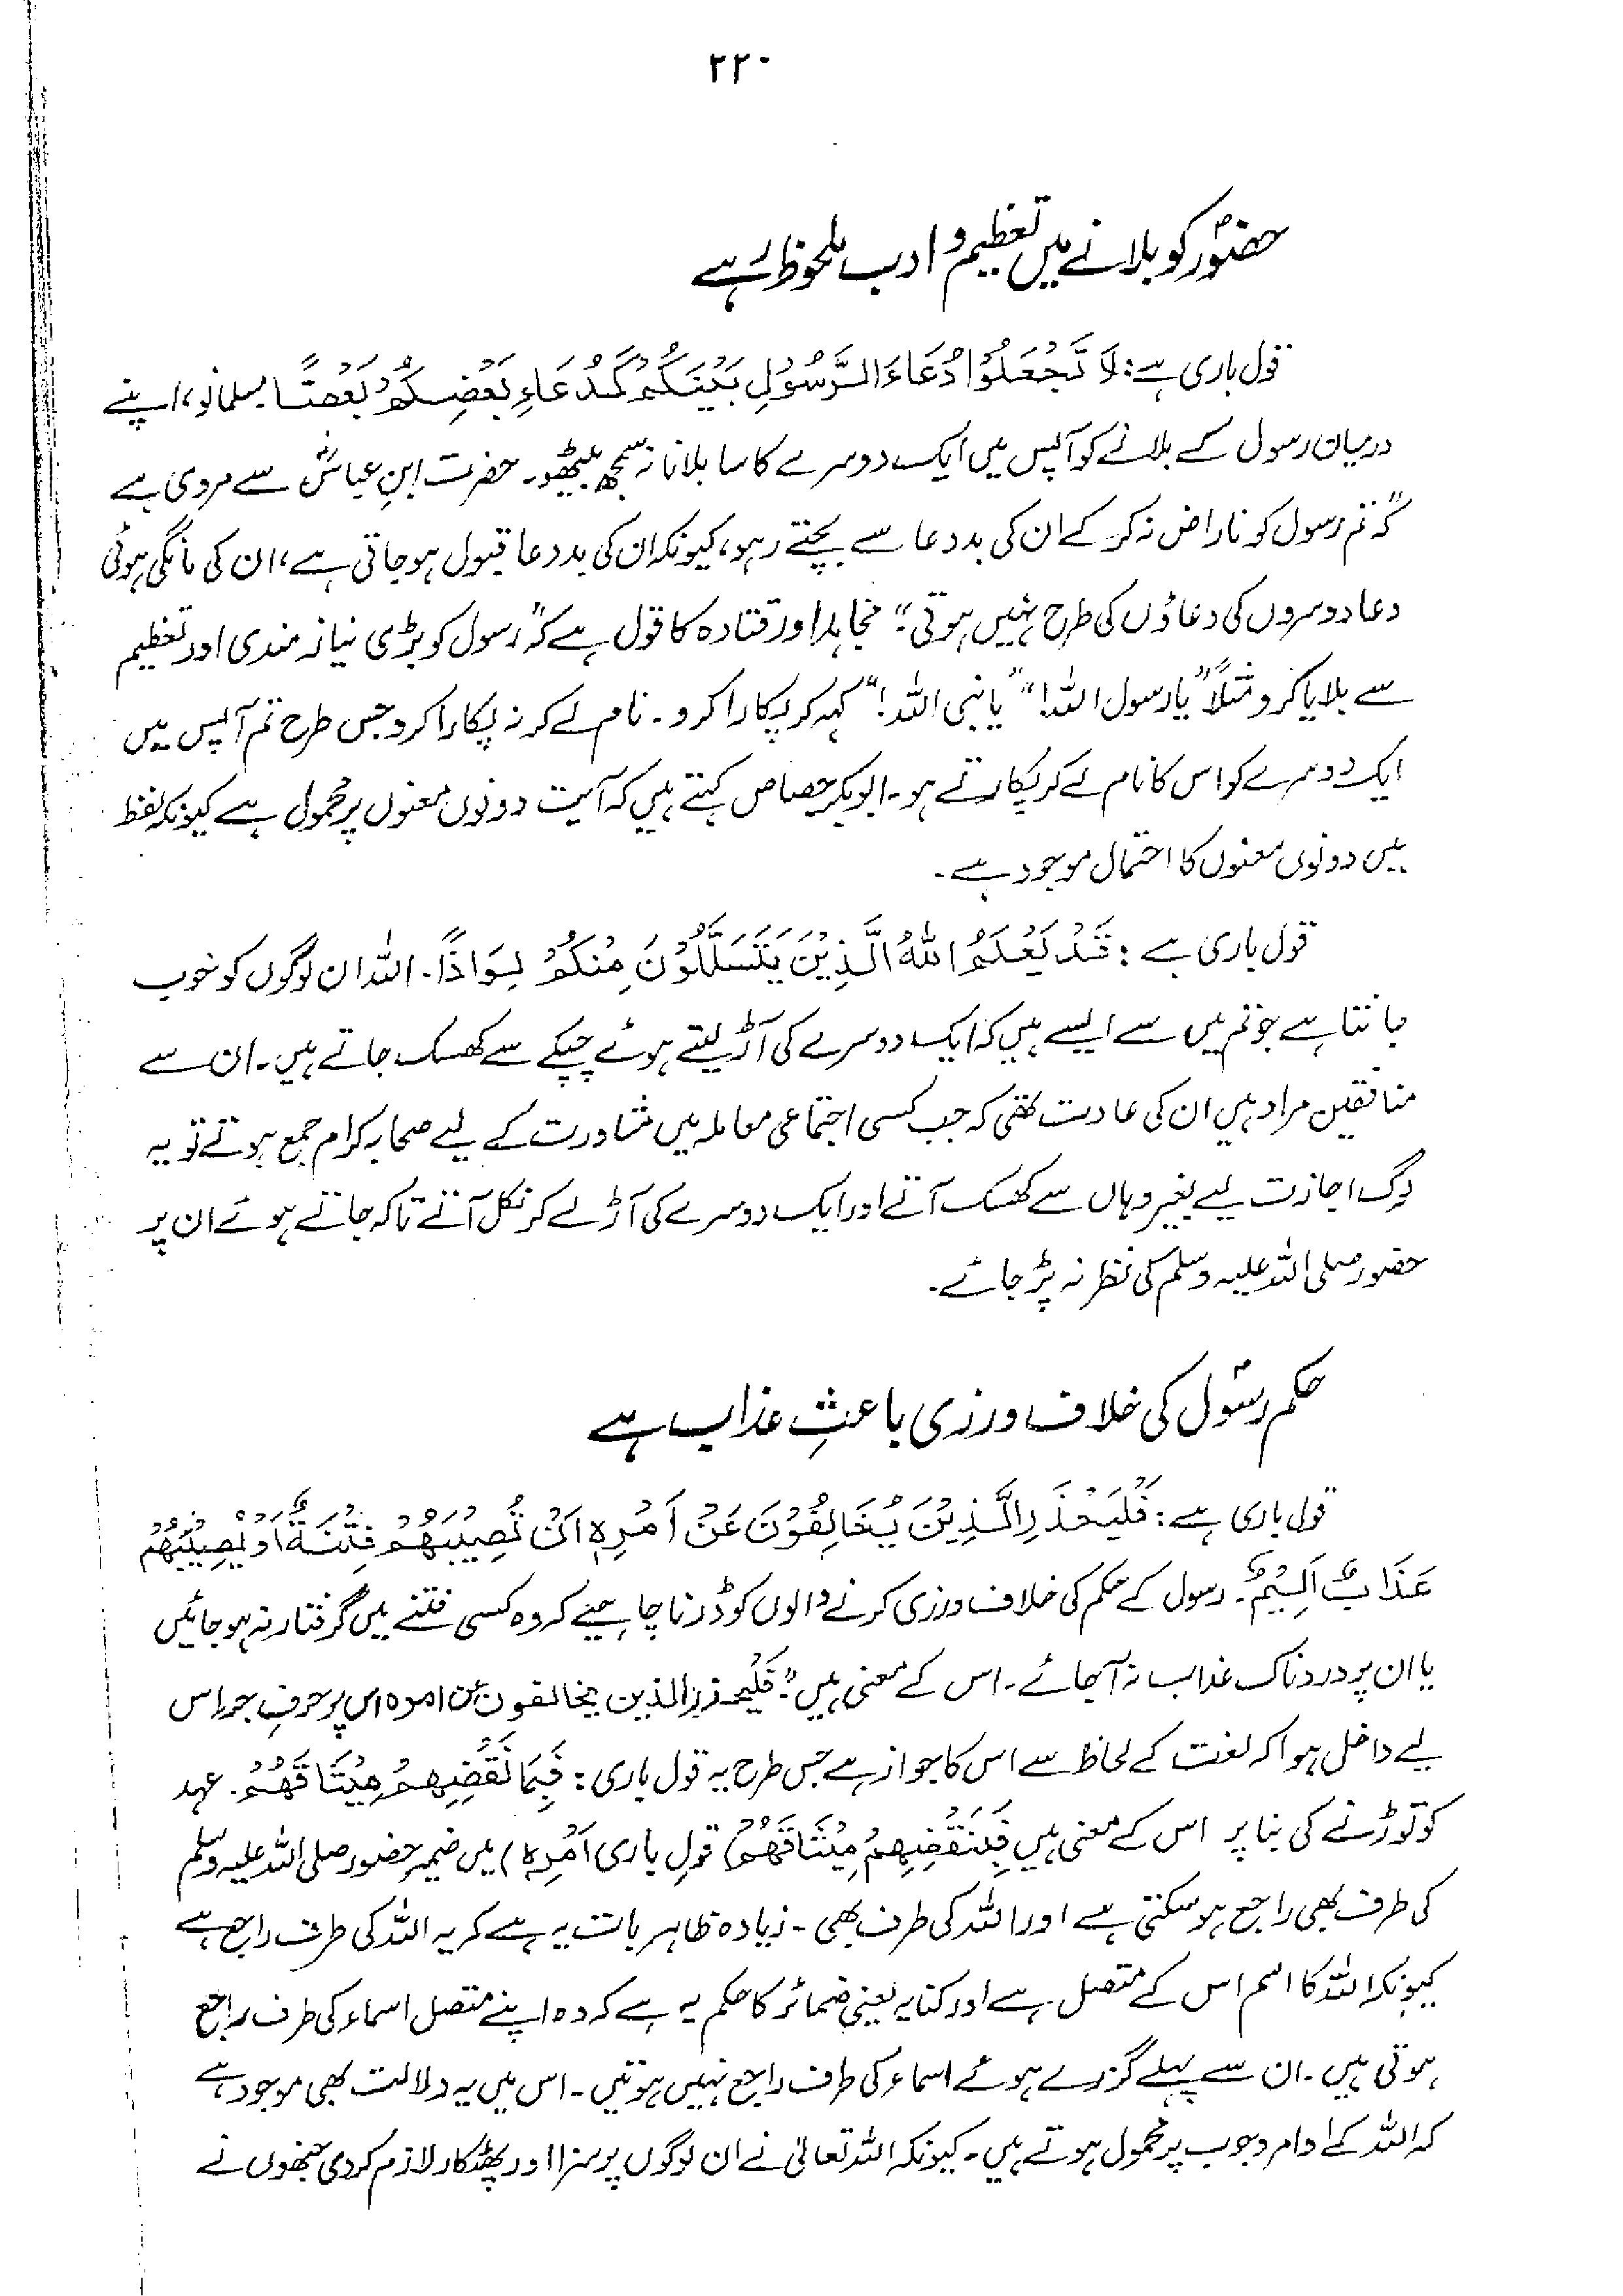 ۲۲۰
حضورؐ کو بلانے میں تعظیم و ادب ملحوظ رہے
قول باری ہے: لَا تَجْعَلُوْا دُعَاءَ الرَّسُوْلِ بَيْنَكُمْ كَدُعَاءِ بَعْضِكُمْ بَعْضًا مسلمانو، اپنے
درمیان رسول کے بلانے کو آپس میں ایک دوسرے کا سا بلانا نہ سمجھ بیٹھو۔ حضرت ابنِ عباسؓ سے مروی ہے
کہ "تم رسول کو ناراض نہ کر کے ان کی بددعا سے بچتے رہو، کیونکہ ان کی بددعا قبول ہو جاتی ہے، ان کی مانگی ہوئی
دعا دوسروں کی دعاؤں کی طرح نہیں ہوتی"۔ مجاہد اور قتادہ کا قول ہے کہ "رسول کو بڑی نیاز مندی اور تعظیم
سے بلایا کرو مثلاً "یا رسول اللہ!" "یا نبی اللہ!" کہہ کر پکارا کرو۔ نام لے کر نہ پکارا کرو جس طرح تم آپس میں
ایک دوسرے کو اس کا نام لے کر پکارتے ہو۔ ابوبکر جصاص کہتے ہیں کہ آیت دونوں معنوں پر محمول ہے کیونکہ لفظ
میں دونوں معنوں کا احتمال موجود ہے۔
قول باری ہے: قَدْ يَعْلَمُ اللّٰهُ الَّذِيْنَ يَتَسَلَّلُوْنَ مِنْكُمْ لِوَاذًا۔ اللہ ان لوگوں کو خوب
جانتا ہے جو تم میں سے ایسے ہیں کہ ایک دوسرے کی آڑ لیتے ہوئے چپکے سے کھسک جاتے ہیں۔ ان سے
منافقین مراد ہیں ان کی عادت تھی کہ جب کسی اجتماعی معاملہ میں مشاورت کے لیے صحابہ کرام جمع ہوتے تو یہ
لوگ اجازت لیے بغیر وہاں سے کھسک آتے اور ایک دوسرے کی آڑ لے کر نکل آتے تاکہ جاتے ہوئے ان پر
حضور صلی اللہ علیہ وسلم کی نظر نہ پڑ جائے۔
حکم رسولؐ کی خلاف ورزی باعثِ عذاب ہے
قول باری ہے: فَلْيَحْذَرِ الَّذِيْنَ يُخَالِفُوْنَ عَنْ اَمْرِهٖ اَنْ تُصِيْبَهُمْ فِتْنَةٌ اَوْ يُصِيْبَهُمْ
عَذَابٌ اَلِيْمٌ۔ رسول کے حکم کی خلاف ورزی کرنے والوں کو ڈرنا چاہیئے کہ وہ کسی فتنے میں گرفتار نہ ہو جائیں
یا ان پر دردناک عذاب نہ آ جائے۔ اس کے معنی ہیں "فَلْیحذرِ الذین یخالفون عن امرہ اس پر حرفِ جر اس
لیے داخل ہوا کہ لغت کے لحاظ سے اس کا جواز ہے جس طرح یہ قول باری: فَبِمَا نَقْضِهِمْ مِيْثَاقَهُمْ۔ عہد
کو توڑنے کی بنا پر اس کے معنی ہیں فَبِنَقْضِهِمْ مِيْثَاقَهُمْ) قولِ باری اَمْرِهٖ) میں ضمیر حضور صلی اللہ علیہ وسلم
کی طرف بھی راجع ہو سکتی ہے اور اللہ کی طرف بھی۔ زیادہ ظاہر بات یہ ہے کہ یہ اللہ کی طرف راجع ہے
کیونکہ اللہ کا اسم اس کے متصل ہے اور کنایہ یعنی ضمائر کا حکم یہ ہے کہ وہ اپنے متصل اسماء کی طرف راجع
ہوتی ہیں۔ ان سے پہلے گزرے ہوئے اسماء کی طرف راجع نہیں ہوتیں۔ اس میں یہ دلالت بھی موجود ہے
کہ اللہ کے اوامر وجوب پر محمول ہوتے ہیں۔ کیونکہ اللہ تعالیٰ نے ان لوگوں پر سزا اور پھٹکار لازم کر دی جنھوں نے